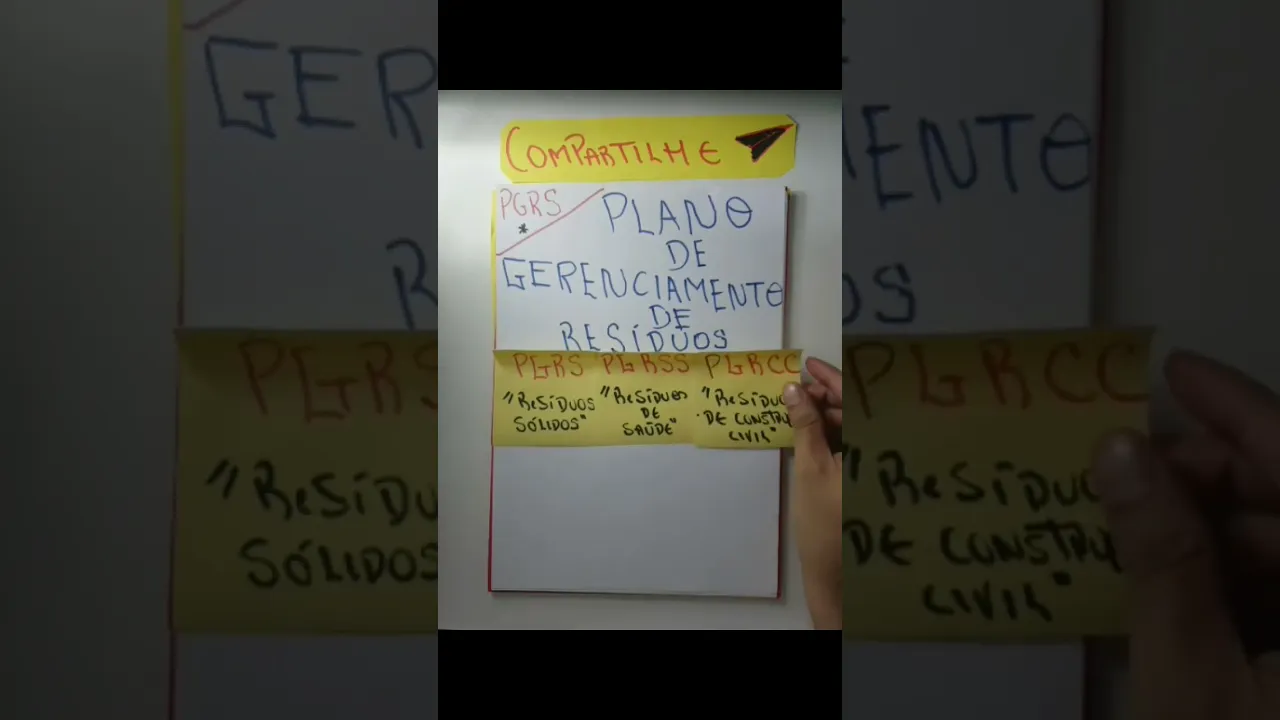 COMPARTILHE
PGRS
*
PLANO
DE
GERENCIAMENTO
DE
RESÍDUOS
PGRS PGRSS PGRCC
"RESÍDUOS
SÓLIDOS"
"RESÍDUOS
DE
SAÚDE"
"RESÍDUO
DE CONSTRU
CIVIL"